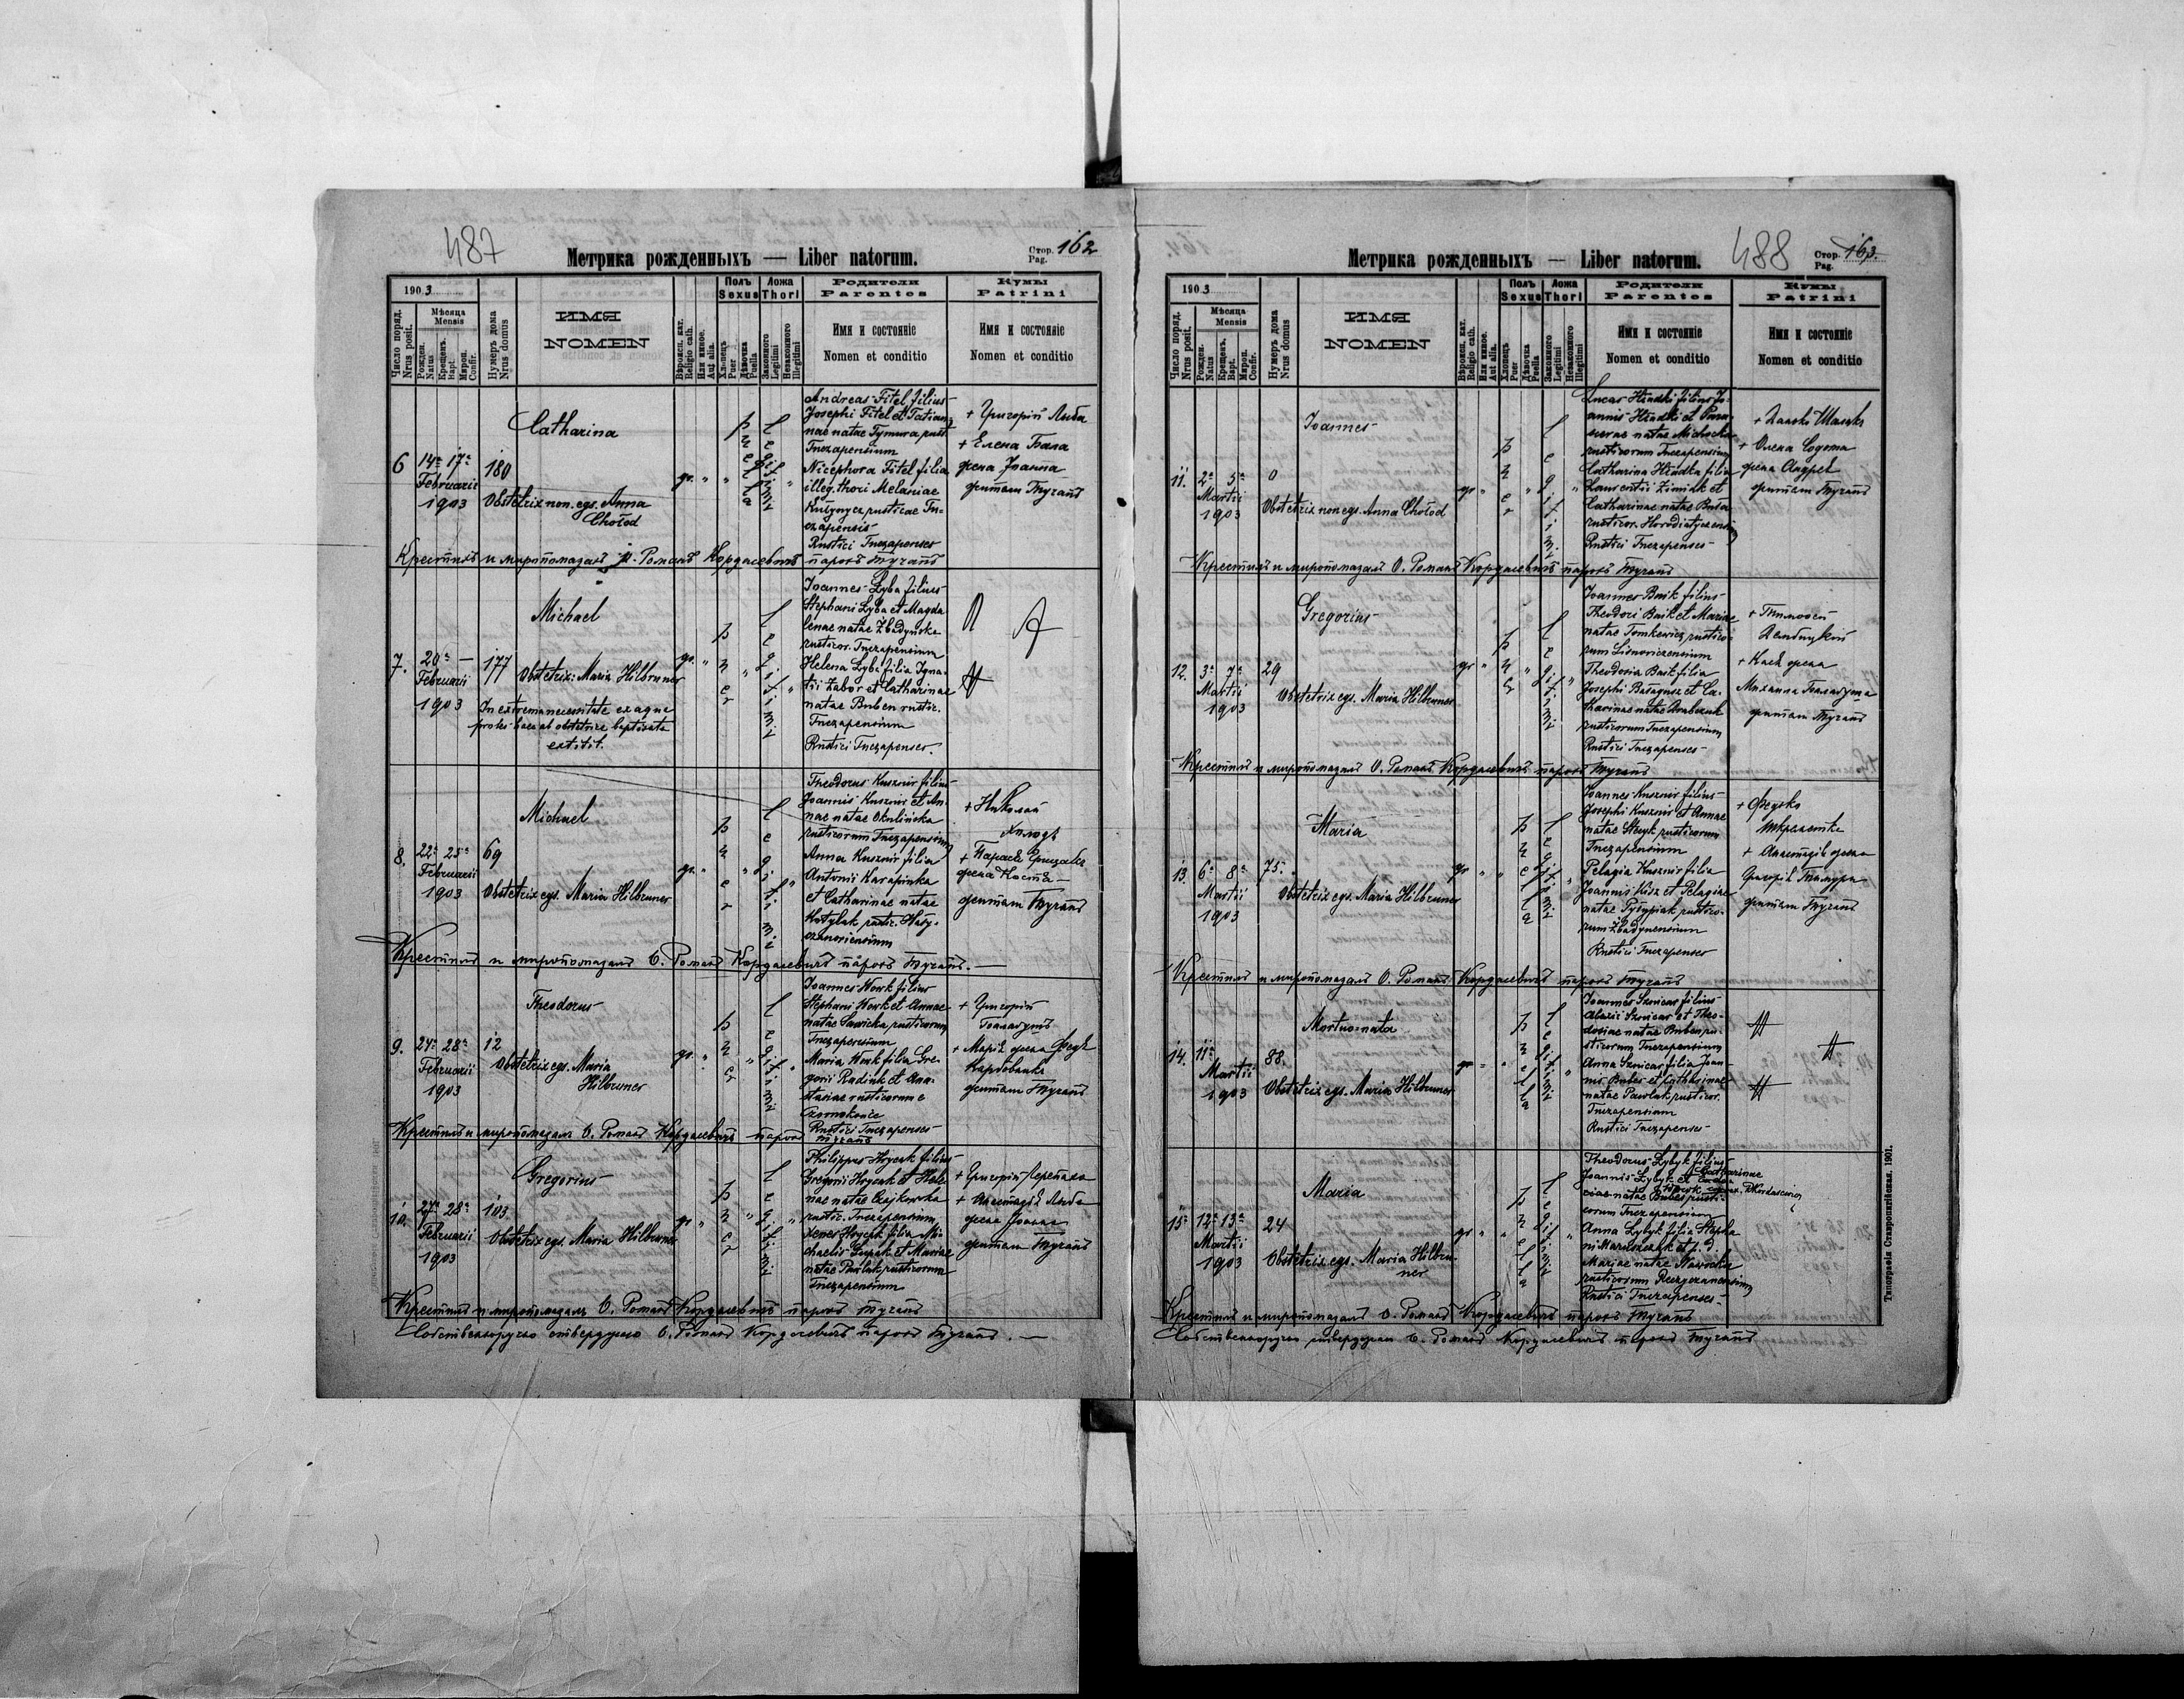 487
Метрика рожденныхъ — Liber natorum.
Стор. 162
Pag.
1903
Мѣсяца
Mensis
Число поряд.
Nrus posit.
Рожден.
Natus
Крещенъ.
Bapt.
Миров.
Confir.
Нумеръ дома
Nrus domus
ИМЯ
NOMEN
Вѣроисп. кат.
Religio cath.
Или иное.
Aut alia.
Полъ
Sexus
Хлопецъ
Puer
Дѣвочка
Puella
Ложа
Thori
Законного
Legitimi
Незаконного
Illegitimi
Родители
Parentes
Имя и состояніе
Nomen et conditio
Кумы
Patrini
Имя и состояніе
Nomen et conditio
6
14a 17a
Februarii
1903
180
Catharina
Obstetrix non. egs. Anna
Chołod
gr.
puella
legitimi
Andreas Fitel filius
Josephi Fitel et Tatian
nae natae Tymura rust.
Tuczapensium
Nicephora Fitel filia
illeg. thori Melaniae
rusticae Tu-
czapensis
Rustici Tuczapenses
+ Григорій Лыба
+ Елена
жена Іоанна
фитам Тучапъ
Крестилъ и миропомазалъ О. Романъ Кордасевичъ парохъ Тучапъ
7.
20a —
Februarii
1903
177
Michael
Obstetrix: Maria Hilbruner
In extrema necessitate ex aqua
proles haec ab obstetrice baptisata
extitit.
gr.
puer
legitimi
Joannes Łyba filius
Stephani Łyba et Magda
lenae natae Zbadynska
rusticor. Tuczapensium
Helena Łyba filia Igna-
tii Zabor et Catharinae
natae Buben rustic.
Tuczapensium
Rustici Tuczapenses.
8.
22a 25a
Februarii
1903
69
Michael
Obstetrix egs. Maria Hilbruner
gr.
puer
legitimi
Theodorus Kusznir filius
Joannis Kusznir et An-
nae natae Okulińska
rusticorum Tuczapensium
Anna Kusznir filia
Antonii Karapinka
et Catharinae natae
Kotylak rustic. Haly-
czanoviensium
+ Николай
Холодъ
+ Параск.
жена Коста
фитам Тучапъ
Крестилъ и миропомазалъ О. Романъ Кордасевичъ парохъ Тучапъ. —
9.
24a 28a
Februarii
1903
12
Theodorus
Obstetrix egs. Maria
Hilbruner
gr.
puer
legitimi
Joannes Wowk filius
Stephani Wowk et Annae
natae Sawicka rusticorum
Tuczapensium
Maria Wowk filia Gre-
gorii Radiuk et Ana-
stasiae rusticorum e
Czornokońce
Rustici Tuczapenses
+ Григорій
+ Марія жена Федь
фитам Тучапъ
Крестилъ и миропомазалъ О. Романъ Кордасевичъ парохъ Тучапъ
10.
27a 28a
Februarii
1903
103
Gregorius
Obstetrix egs. Maria Hilbruner
gr.
puer
legitimi
Philippus Hrycak filius
Gregorii Hrycak et Hele
nae natae Czajkowska
rustic. Tuczapensium
Xenes Hrycak filia Mi-
chaelis Łupak et Mariae
natae Pawluk rusticorum
Tuczapensium
+ Григорій Черепаха
+ Анастасія Лыба
жена Іоанна
фитам Тучапъ
Крестилъ и миропомазалъ О. Романъ Кордасевичъ парохъ Тучапъ
Собственоручно ствердужаю О. Романъ Кордасевичъ парохъ Тучапъ. —
Метрика рожденныхъ — Liber natorum.
488
Стор. 163.
Pag.
1903
Мѣсяца
Mensis
Число поряд.
Nrus posit.
Рожден.
Natus
Крещенъ.
Bapt.
Миров.
Confir.
Нумеръ дома
Nrus domus
ИМЯ
NOMEN
Вѣроисп. кат.
Religio cath.
Или иное.
Aut alia.
Полъ
Sexus
Хлопецъ
Puer
Дѣвочка
Puella
Ложа
Thori
Законного
Legitimi
Незаконного
Illegitimi
Родители
Parentes
Имя и состояніе
Nomen et conditio
Кумы
Patrini
Имя и состояніе
Nomen et conditio
11.
2a 5a
Martii
1903
0
Joannes
Obstetrix non egs. Anna Chołod
gr
puer
legitimi
Lucas Hładki filius Jo-
annis Hładki et Para-
scevae natae Michocka
rusticorum Tuczapensium
Catharina Hładka filia
Laurentii Zimiak et
Catharinae natae Busa
rusticor. Horodiatyczensium
Rustici Tuczapenses
+ Олена Содома
жена Андрея
фитам Тучапъ
Крестилъ и миропомазалъ О. Романъ Кордасевичъ парохъ Тучапъ
12.
3a 7a
Martii
1903
29
Gregorius
Obstetrix egs. Maria Hilbruner
gr
puer
legitimi
Joannes Baik filius
Theodori Baik et Mariae
natae Tomkewicz rustico-
rum Lisnoviczensium
Theodosia Baik filia
Josephi Bałagusz et Ca-
tharinae natae
rusticorum Tuczapensium
Rustici Tuczapenses
+ Тимофей
+ Каск жена
Михаила
фитам Тучапъ
Крестилъ и миропомазалъ О. Романъ Кордасевичъ парохъ Тучапъ
13.
6a 8a
Martii
1903
75.
Maria
Obstetrix egs. Maria Hilbruner
gr
puella
legitimi
Joannes Kusznir filius
Josephi Kusznir et Annae
natae Stryk rusticorum
Tuczapensium
Pelagia Kusznir filia
Joannis Kisz et Pelagiae
natae Pyłypiak rustico-
rum Zbadynensium
Rustici Tuczapenses
+ Федько
+ Анастасія жена
Григорія Тимура
фитам Тучапъ
Крестилъ и миропомазалъ О. Романъ Кордасевичъ парохъ Тучапъ
14.
11a
Martii
1903
88.
Mortuo-nata
Obstetrix egs. Maria Hilbruner
gr
puella
legitimi
Joannes Sznicar filius
Alexii Sznicar et Theo-
dosiae natae Buben ru-
sticorum Tuczapensium
Anna Sznicar filia Joan-
nis Buben et Catharinae
natae Pawluk rusticor.
Tuczapensium
Rustici Tuczapenses
15
12a 13a
Martii
1903
24
Maria
Obstetrix egs. Maria Hilbru-
ner
gr
puella
legitimi
Theodorus Łybyk filius
Joannis Łybyk et
Catharinae
natae Buben rusti-
corum Tuczapensium
Anna Łybyk filia Stepha
ni Maruszczak et
Mariae natae Nawrocka
rusticorum
Rustici Tuczapenses
Крестилъ и миропомазалъ О. Романъ Кордасевичъ парохъ Тучапъ
Собственоручно ствердужаю О. Романъ Кордасевичъ парохъ Тучапъ
Типографія Ставропигійская. 1901.